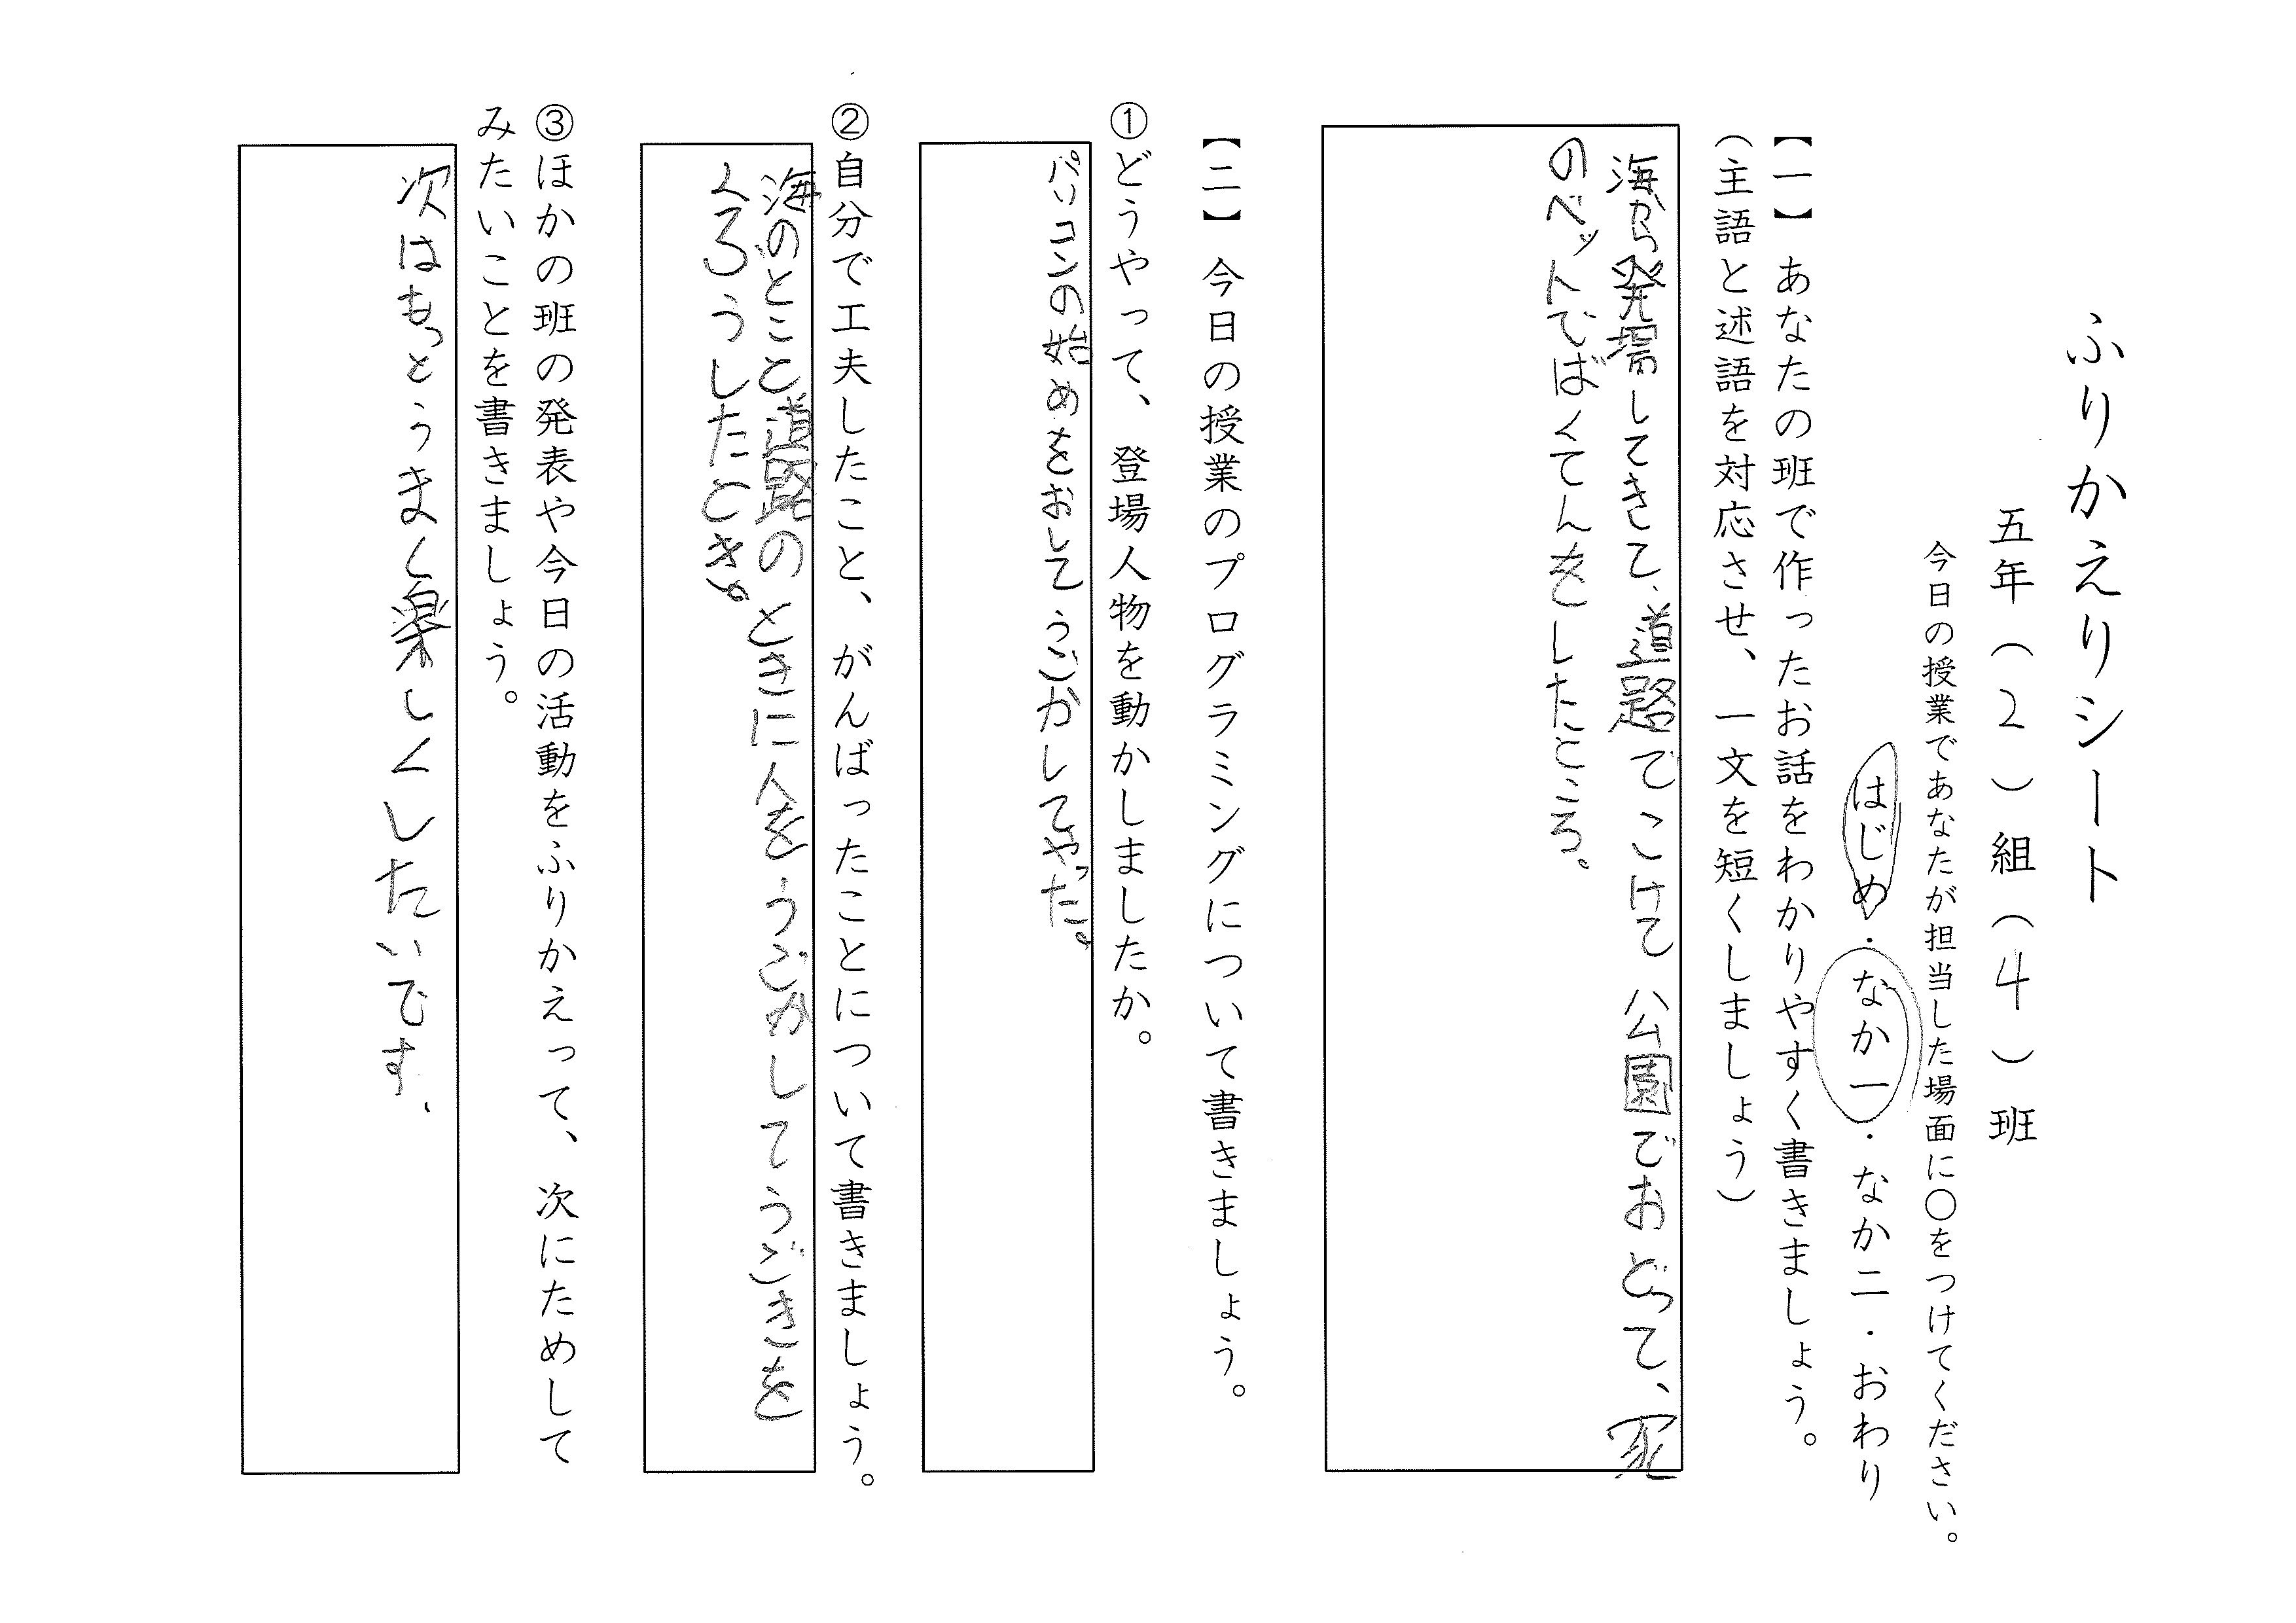 ふりかえりシート
五年（２）組（４）班
今日の授業であなたが担当した場面に○をつけてください。
はじめ・なか一・なか二・おわり
【一】あなたの班で作ったお話をわかりやすく書きましょう。
（主語と述語を対応させ、一文を短くしましょう）
海から発場してきて、道路でこけて公園でおどって、家
のベットでばくてんをしたところ。
【二】今日の授業のプログラミングについて書きましょう。
①どうやって、登場人物を動かしましたか。
パソコンの始めをおしてうごかしてやった。
②自分で工夫したこと、がんばったことについて書きましょう。
海のとこと道路のときに人をうごかしてうごきを
くろうしたとき。
③ほかの班の発表や今日の活動をふりかえって、次にためして
みたいことを書きましょう。
次はもっとうまく楽しくしたいです、